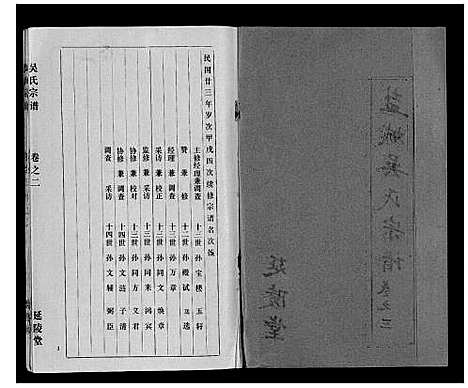 盐城吴氏宗谱 卷之三
延陵堂
民国廿三年岁次甲戌四次续修宗谱名次
主修经理兼调查 十三世孙 宝楼 玉轩
赞修 十二世孙
经理兼调查 十三世孙 万章
采访兼校正 十三世孙 同文 焕章
监修兼采访 十三世孙 同来 鸿宾
协修兼校对 十三世孙 同方 义君
协修兼调查 十四世孙 文涟 子清
调查 采访 十四世孙 文辅 弼臣
吴氏宗谱 卷之二
延陵堂
1